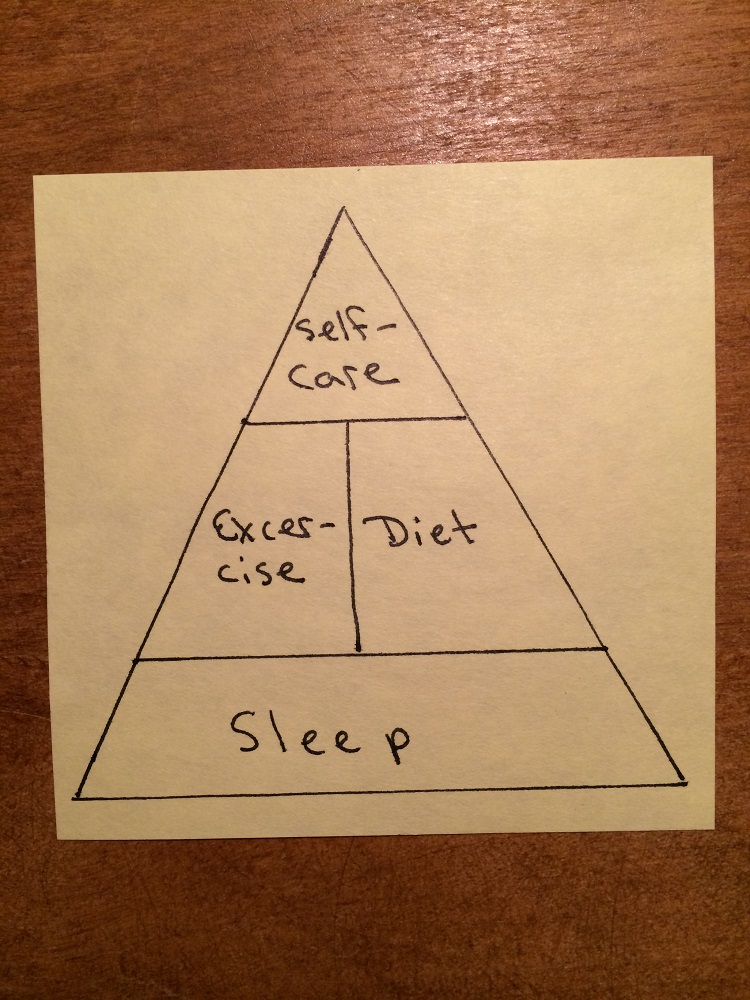 self-
care
Excer-
cise
Diet
Sleep